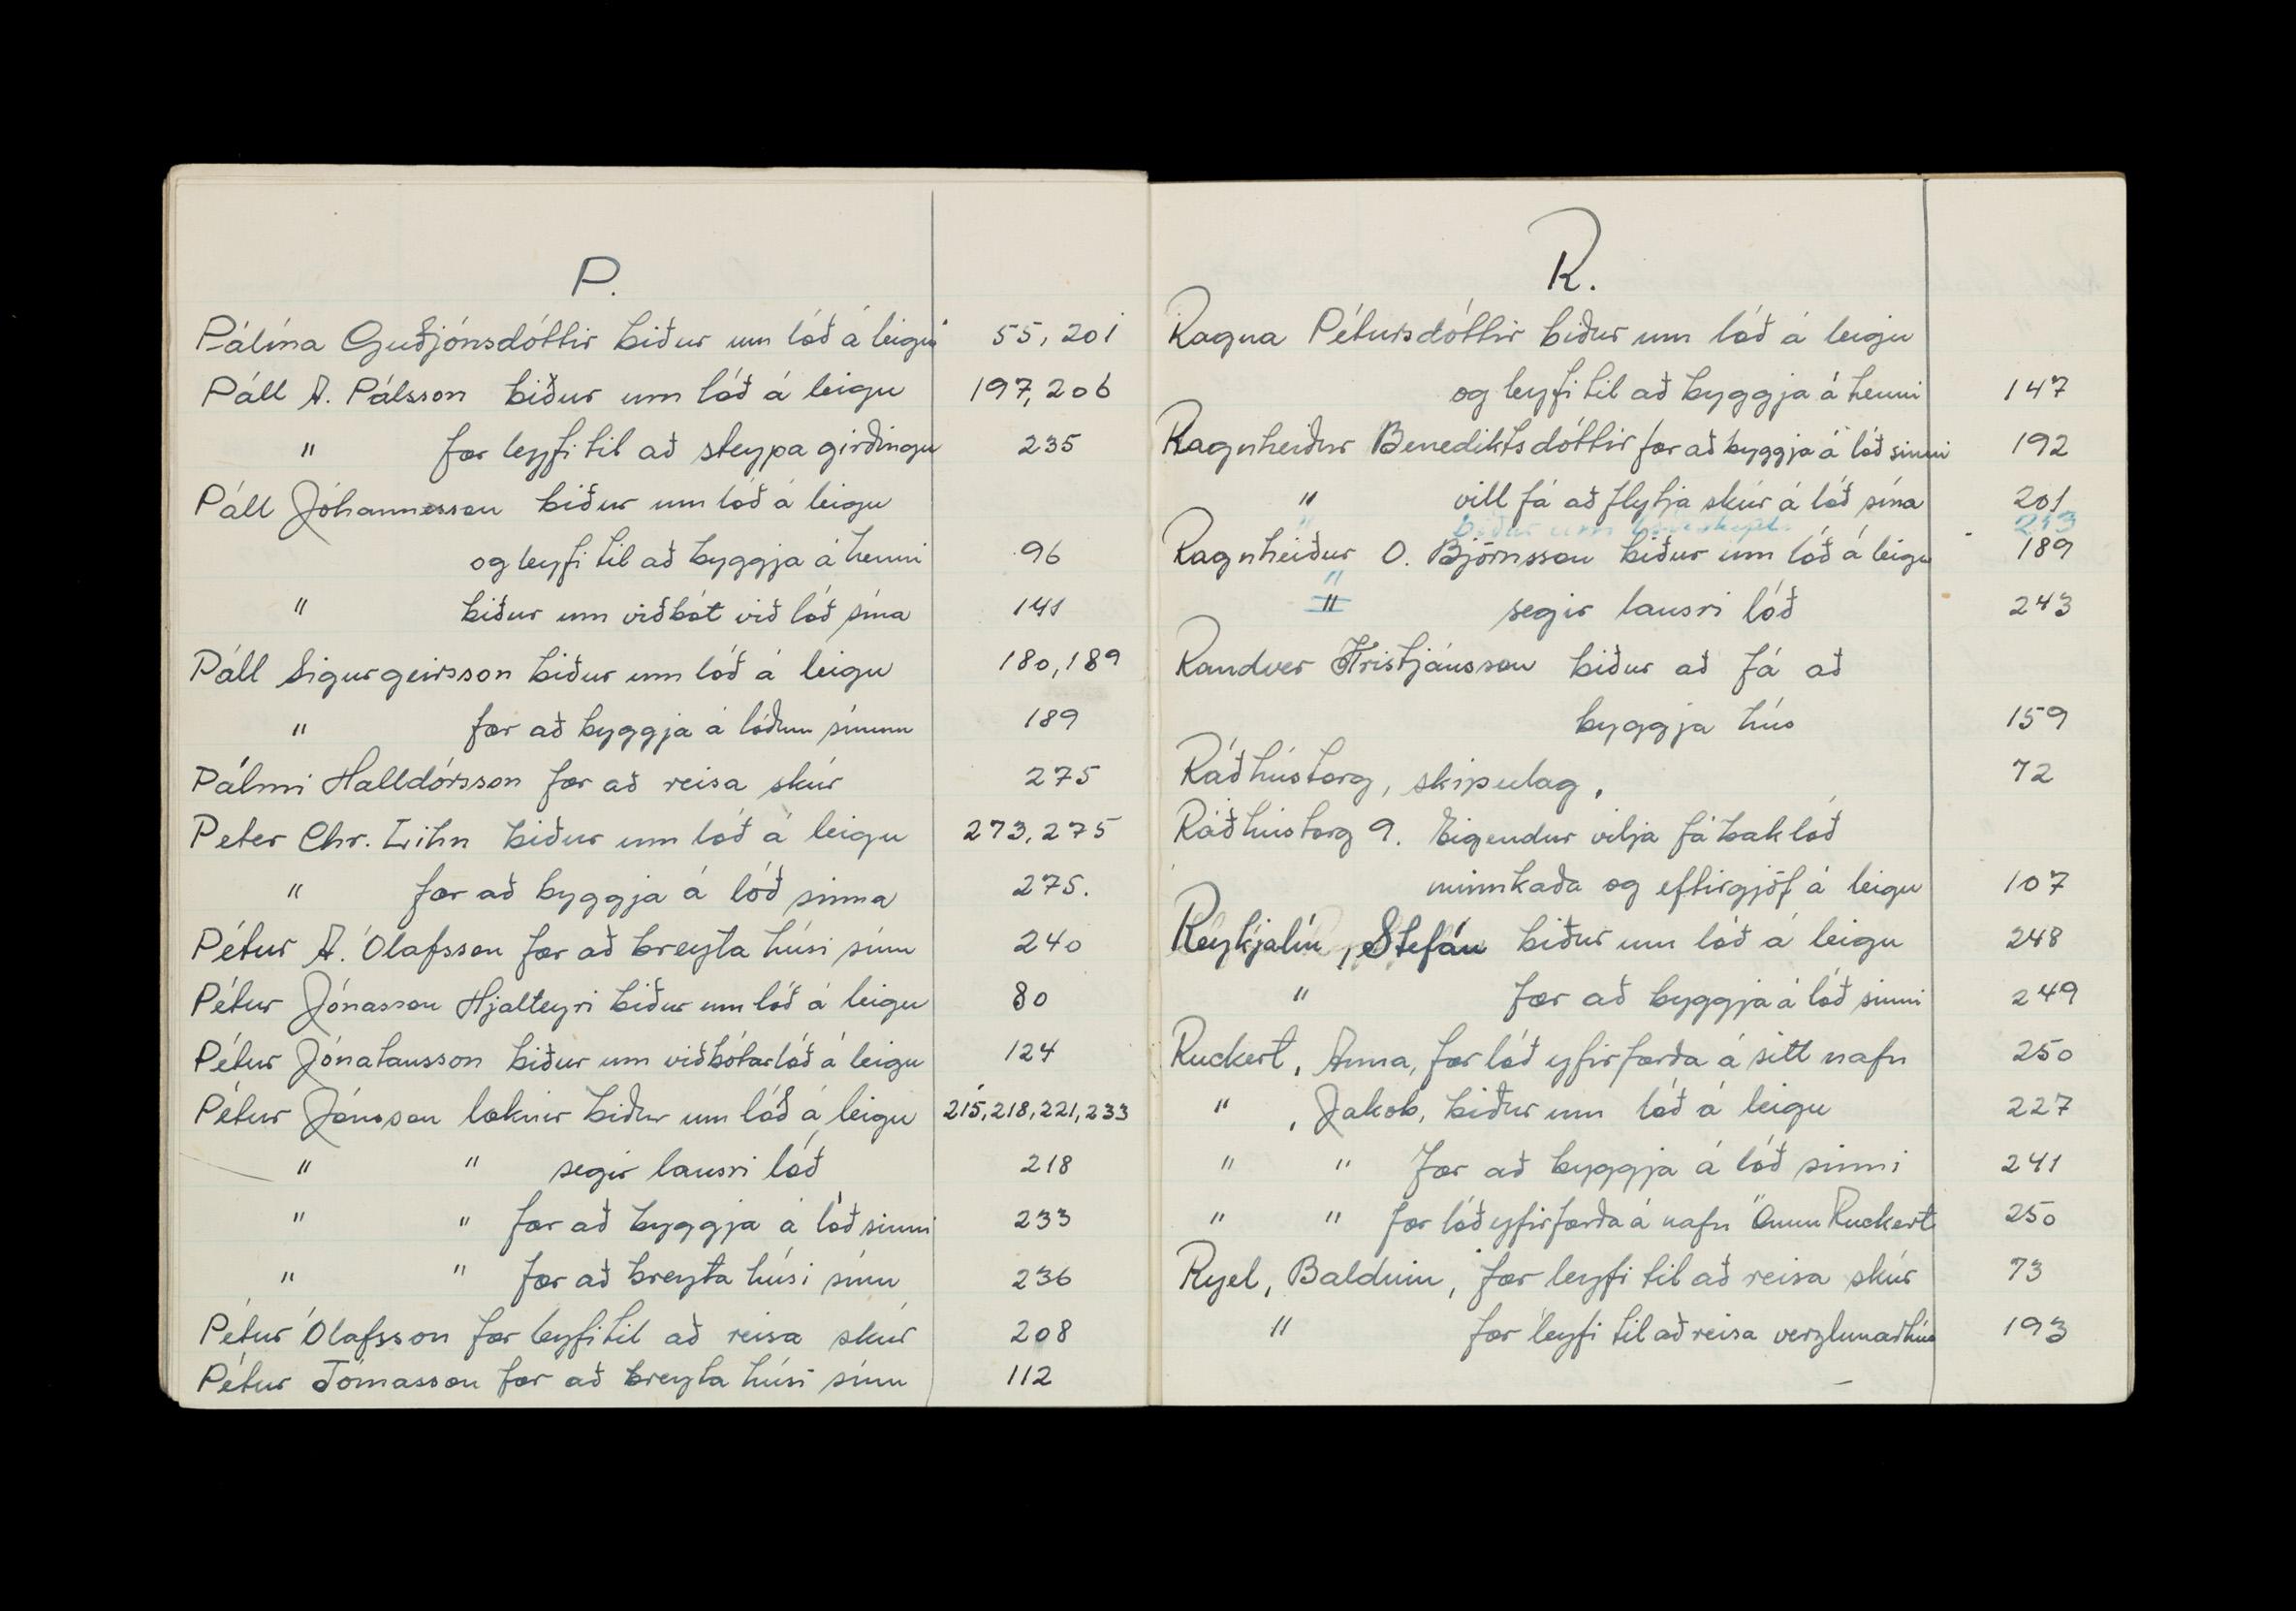 P.
Pálína Guðjónsdóttir biður um lóð á leigu 55, 201
Páll A. Pálsson biður um lóð á leigu 197, 206
" fær leyfi til að steypa girðingu 235
Páll Jóhannesson biður um lóð á leigu
og leyfi til að byggja á henni 96
" biður um viðbót við lóð sína 141
Páll Sigurgeirsson biður um lóð á leigu 180, 189
" fær að byggja á lóðum sínum 189
Pálmi Halldórsson fær að reisa skúr 275
Peter Chr. Lihn biður um lóð á leigu 273, 275
" fær að byggja á lóð sinna 275.
Pétur A. Ólafsson fær að breyta húsi sínu 240
Pétur Jónasson Hjalteyri biður um lóð á leigu 80
Pétur Jónatansson biður um viðbótarlóð á leigu 124
Pétur Jónsson læknir biður um lóð á leigu 215, 218, 221, 233
" " segir lausri lóð 218
" " fær að byggja á lóð sinni 233
" " fær að breyta húsi sínu 236
Pétur Ólafsson fær leyfi til að reisa skúr 208
Pétur Tómasson fær að breyta húsi sínu 112
R.
Ragna Pétursdóttir biður um lóð á leigu
og leyfi til að byggja á henni 147
Ragnheiður Benediktsdóttir fær að byggja á lóð sinni 192
" vill fá að flytja skúr á lóð sína 201
" biður um 213
Ragnheiður O. Björnsson biður um lóð á leigu 189
" segir lausri lóð 243
Randver Kristjánsson biður að fá að
byggja hús 159
Ráðhústorg, skipulag, 72
Ráðhústorg 9. Eigendur vilja fá baklóð
minnkaða og eftirgjöf á leigu 107
Reykjalín, Stefán biður um lóð á leigu 248
" fær að byggja á lóð sinni 249
Ruckert, Anna, fær lóð yfirfærða á sitt nafn 250
" , Jakob, biður um lóð á leigu 227
" " fær að byggja á lóð sinni 241
" " fær lóð yfirfærða á nafn Önnu Ruckert 250
Ryel, Balduin, fær leyfi til að reisa skúr 73
" fær leyfi til að reisa verzlunarhús 193